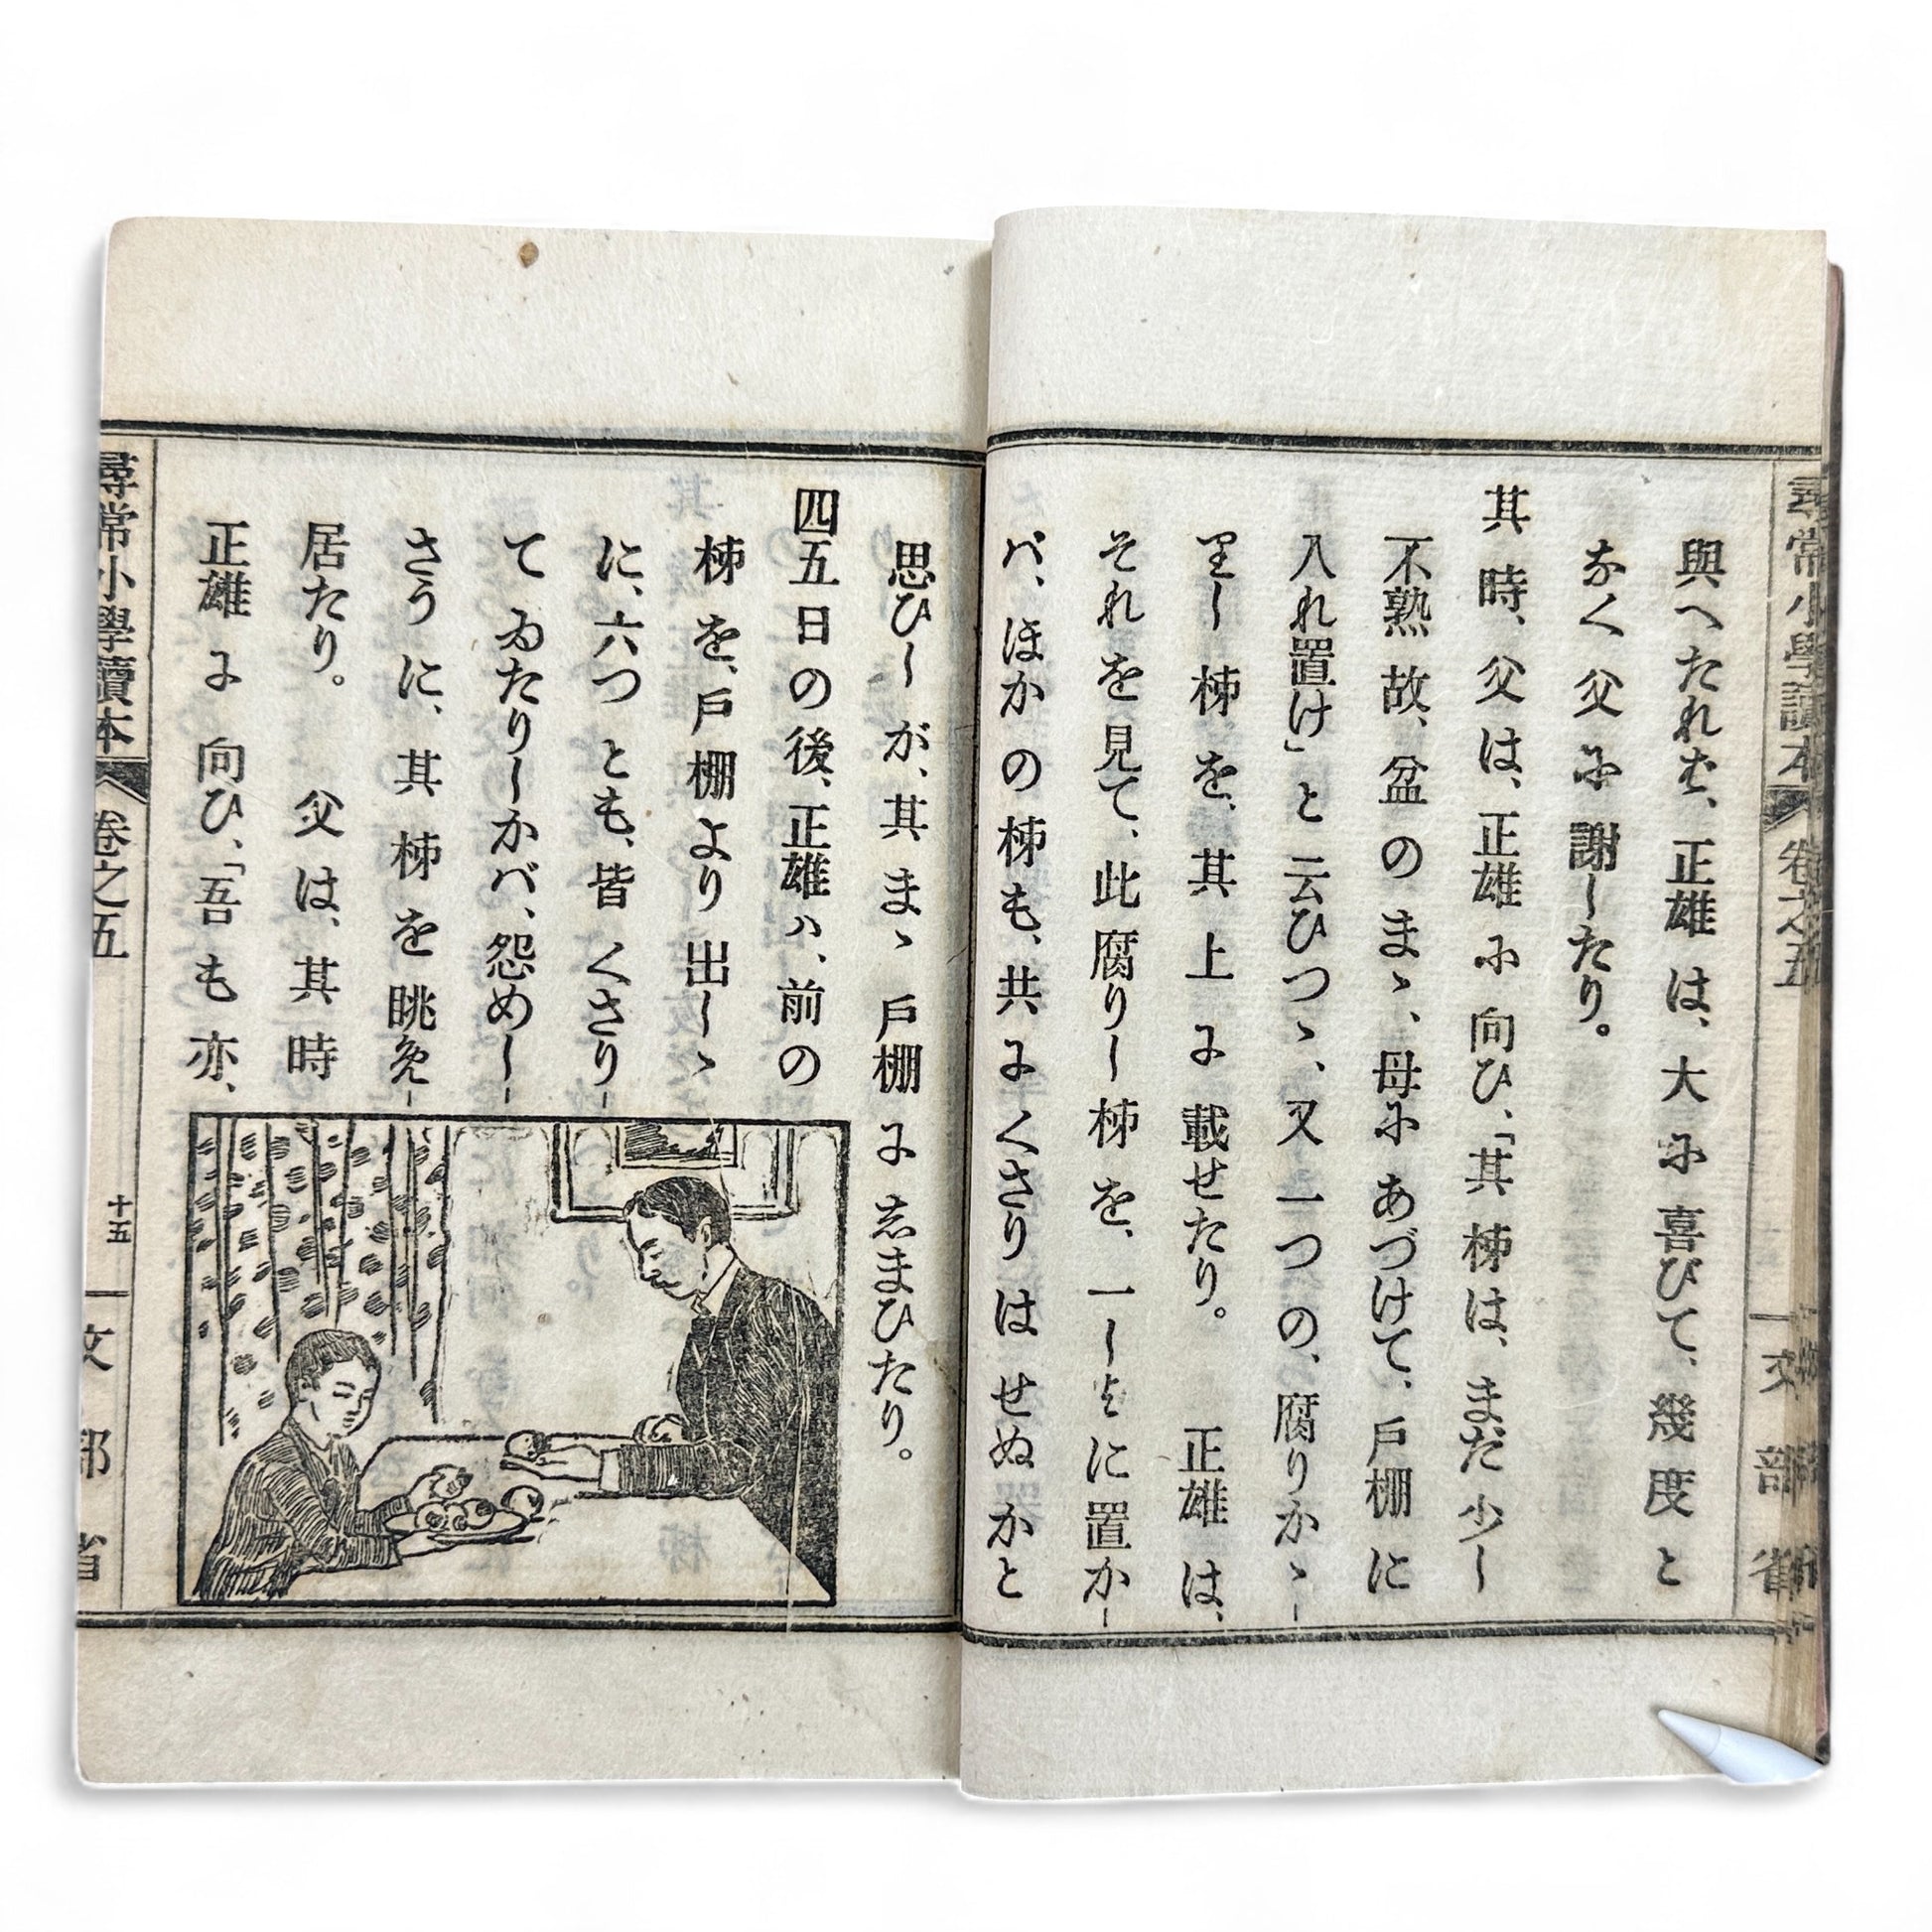 尋常小學讀本 卷之五 文部省
與へたれば、正雄は、大に喜びて、幾度と
なく父に謝したり。
其時、父は、正雄に向ひ、「其柹は、まだ少し
不熟故、盆のまゝ、母にあづけて、戸棚に
入れ置け」と云ひつゝ、又一つの、腐りかゝ
りし柹を、其上に載せたり。 正雄は、
それを見て、此腐りし柹を、一しよに置か
バ、ほかの柹も、共にくさりはせぬかと
思ひしが、其まゝ戸棚に志まひたり。
四五日の後、正雄ハ、前の
柹を、戸棚より出しゝ
に、六つとも、皆くさり
てゐたりしかバ、怨めし
さうに、其柹を眺め
居たり。 父は、其時
正雄に向ひ、「吾も亦、
尋常小學讀本 卷之五 十五 文部省